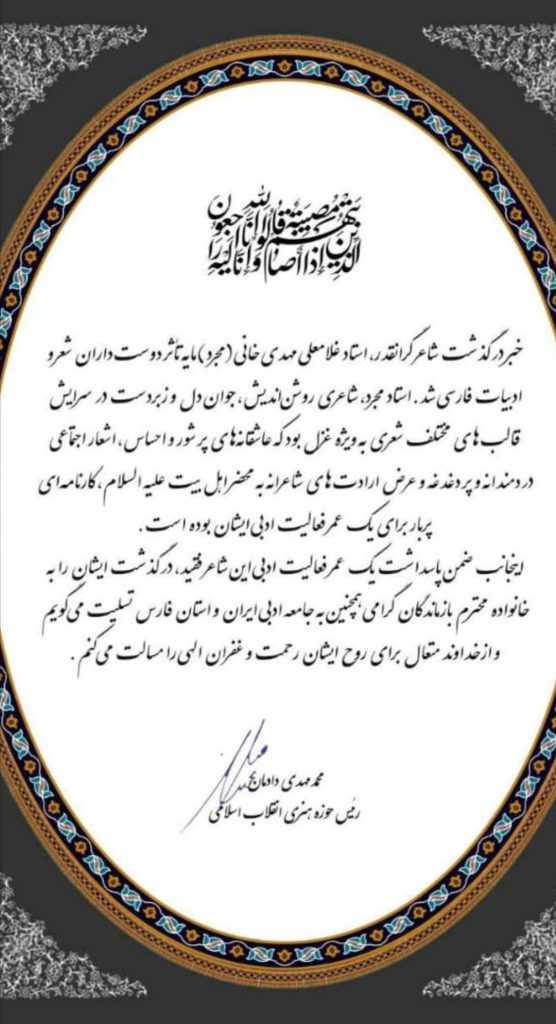 الذین اذا اصابتهم مصیبة قالوا انا لله و انا الیه راجعون
خبر درگذشت شاعر گرانقدر، استاد غلامعلی مهدی خانی (مجرد) مایه تأثر دوست داران شعر و
ادبیات فارسی شد. استاد مجرد، شاعری روشن‌اندیش، جوان دل و زبردست در سرایش
قالب های مختلف شعری به ویژه غزل بود که عاشقانه‌های پر شور و احساس، اشعار اجتماعی
دردمندانه و پر دغدغه و عرض ارادت های شاعرانه به محضر اهل بیت علیه السلام، کارنامه‌ای
پربار برای یک عمر فعالیت ادبی ایشان بوده است.
اینجانب ضمن پاسداشت یک عمر فعالیت ادبی این شاعر فقید، درگذشت ایشان را به
خانواده محترم بازماندگان گرامی همچنین به جامعه ادبی ایران و استان فارس تسلیت می‌گویم
و از خداوند متعال برای روح ایشان رحمت و غفران الهی را مسالت می‌کنم.
محمد مهدی دادمان
رئیس حوزه هنری انقلاب اسلامی